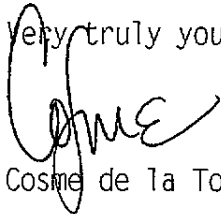 Very truly you
Cosme
Cosme de la To